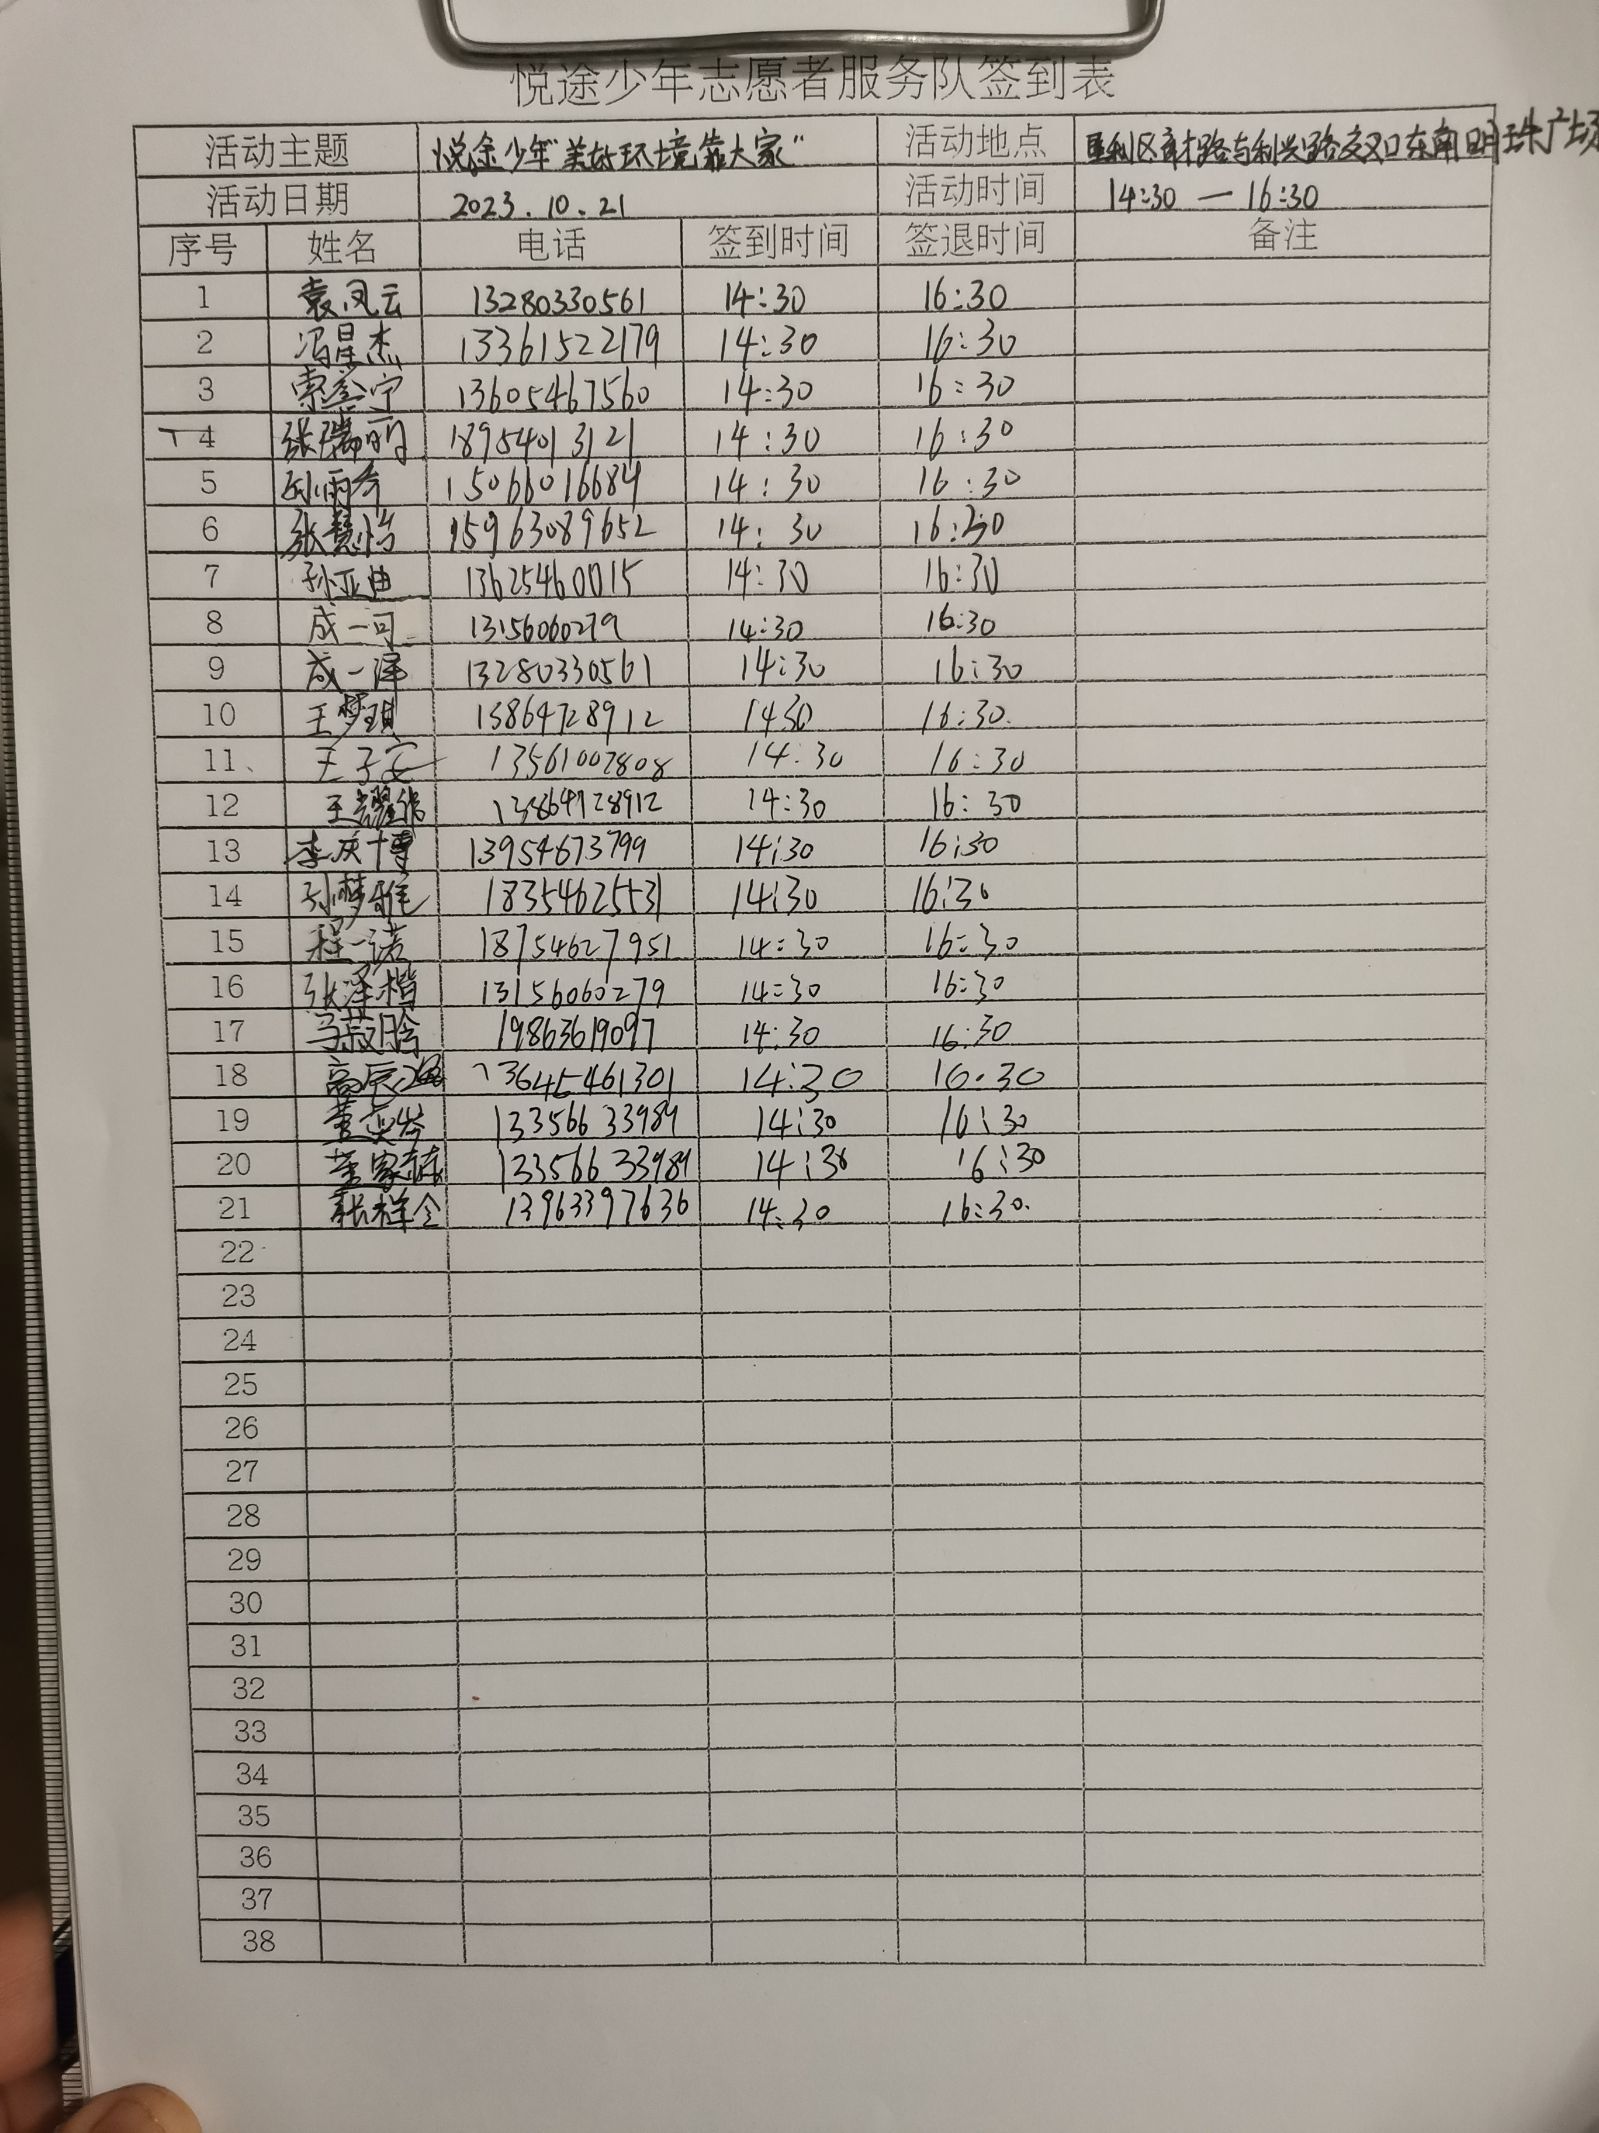 悦途少年志愿者服务队签到表
活动主题 悦途少年"美好环境靠大家" 活动地点 垦利区 路与利兴路交叉口东南明珠广场
活动日期 2023.10.21 活动时间 14:30 — 16:30
序号 姓名 电话 签到时间 签退时间 备注
1 袁凤云 13280330561 14:30 16:30
2 冯星杰 13361522179 14:30 16:30
3 宁 13605467560 14:30 16:30
4 张瑞丽 18954013121 14:30 16:30
5 孙雨 15066016684 14:30 16:30
6 张慧怡 15963089652 14:30 16:30
7 孙亚曲 13625460015 14:30 16:30
8 成一可 13156060279 14:30 16:30
9 成一泽 13280330561 14:30 16:30
10 王梦琪 13864728912 1430 16:30
11 王子安 13561002808 14:30 16:30
12 王耀 13864728912 14:30 16:30
13 李庆博 13954673799 14:30 16:30
14 孙梦雅 18354625531 14:30 16:30
15 程一诺 18754627951 14:30 16:30
16 张泽楷 13156060279 14:30 16:30
17 马菽晗 19863619097 14:30 16:30
18 高辰 13645461301 14:30 16:30
19 董奕岑 13356633989 14:30 16:30
20 董家赫 13356633989 14:30 16:30
21 张祥全 13963397636 14:30 16:30
22
23
24
25
26
27
28
29
30
31
32
33
34
35
36
37
38